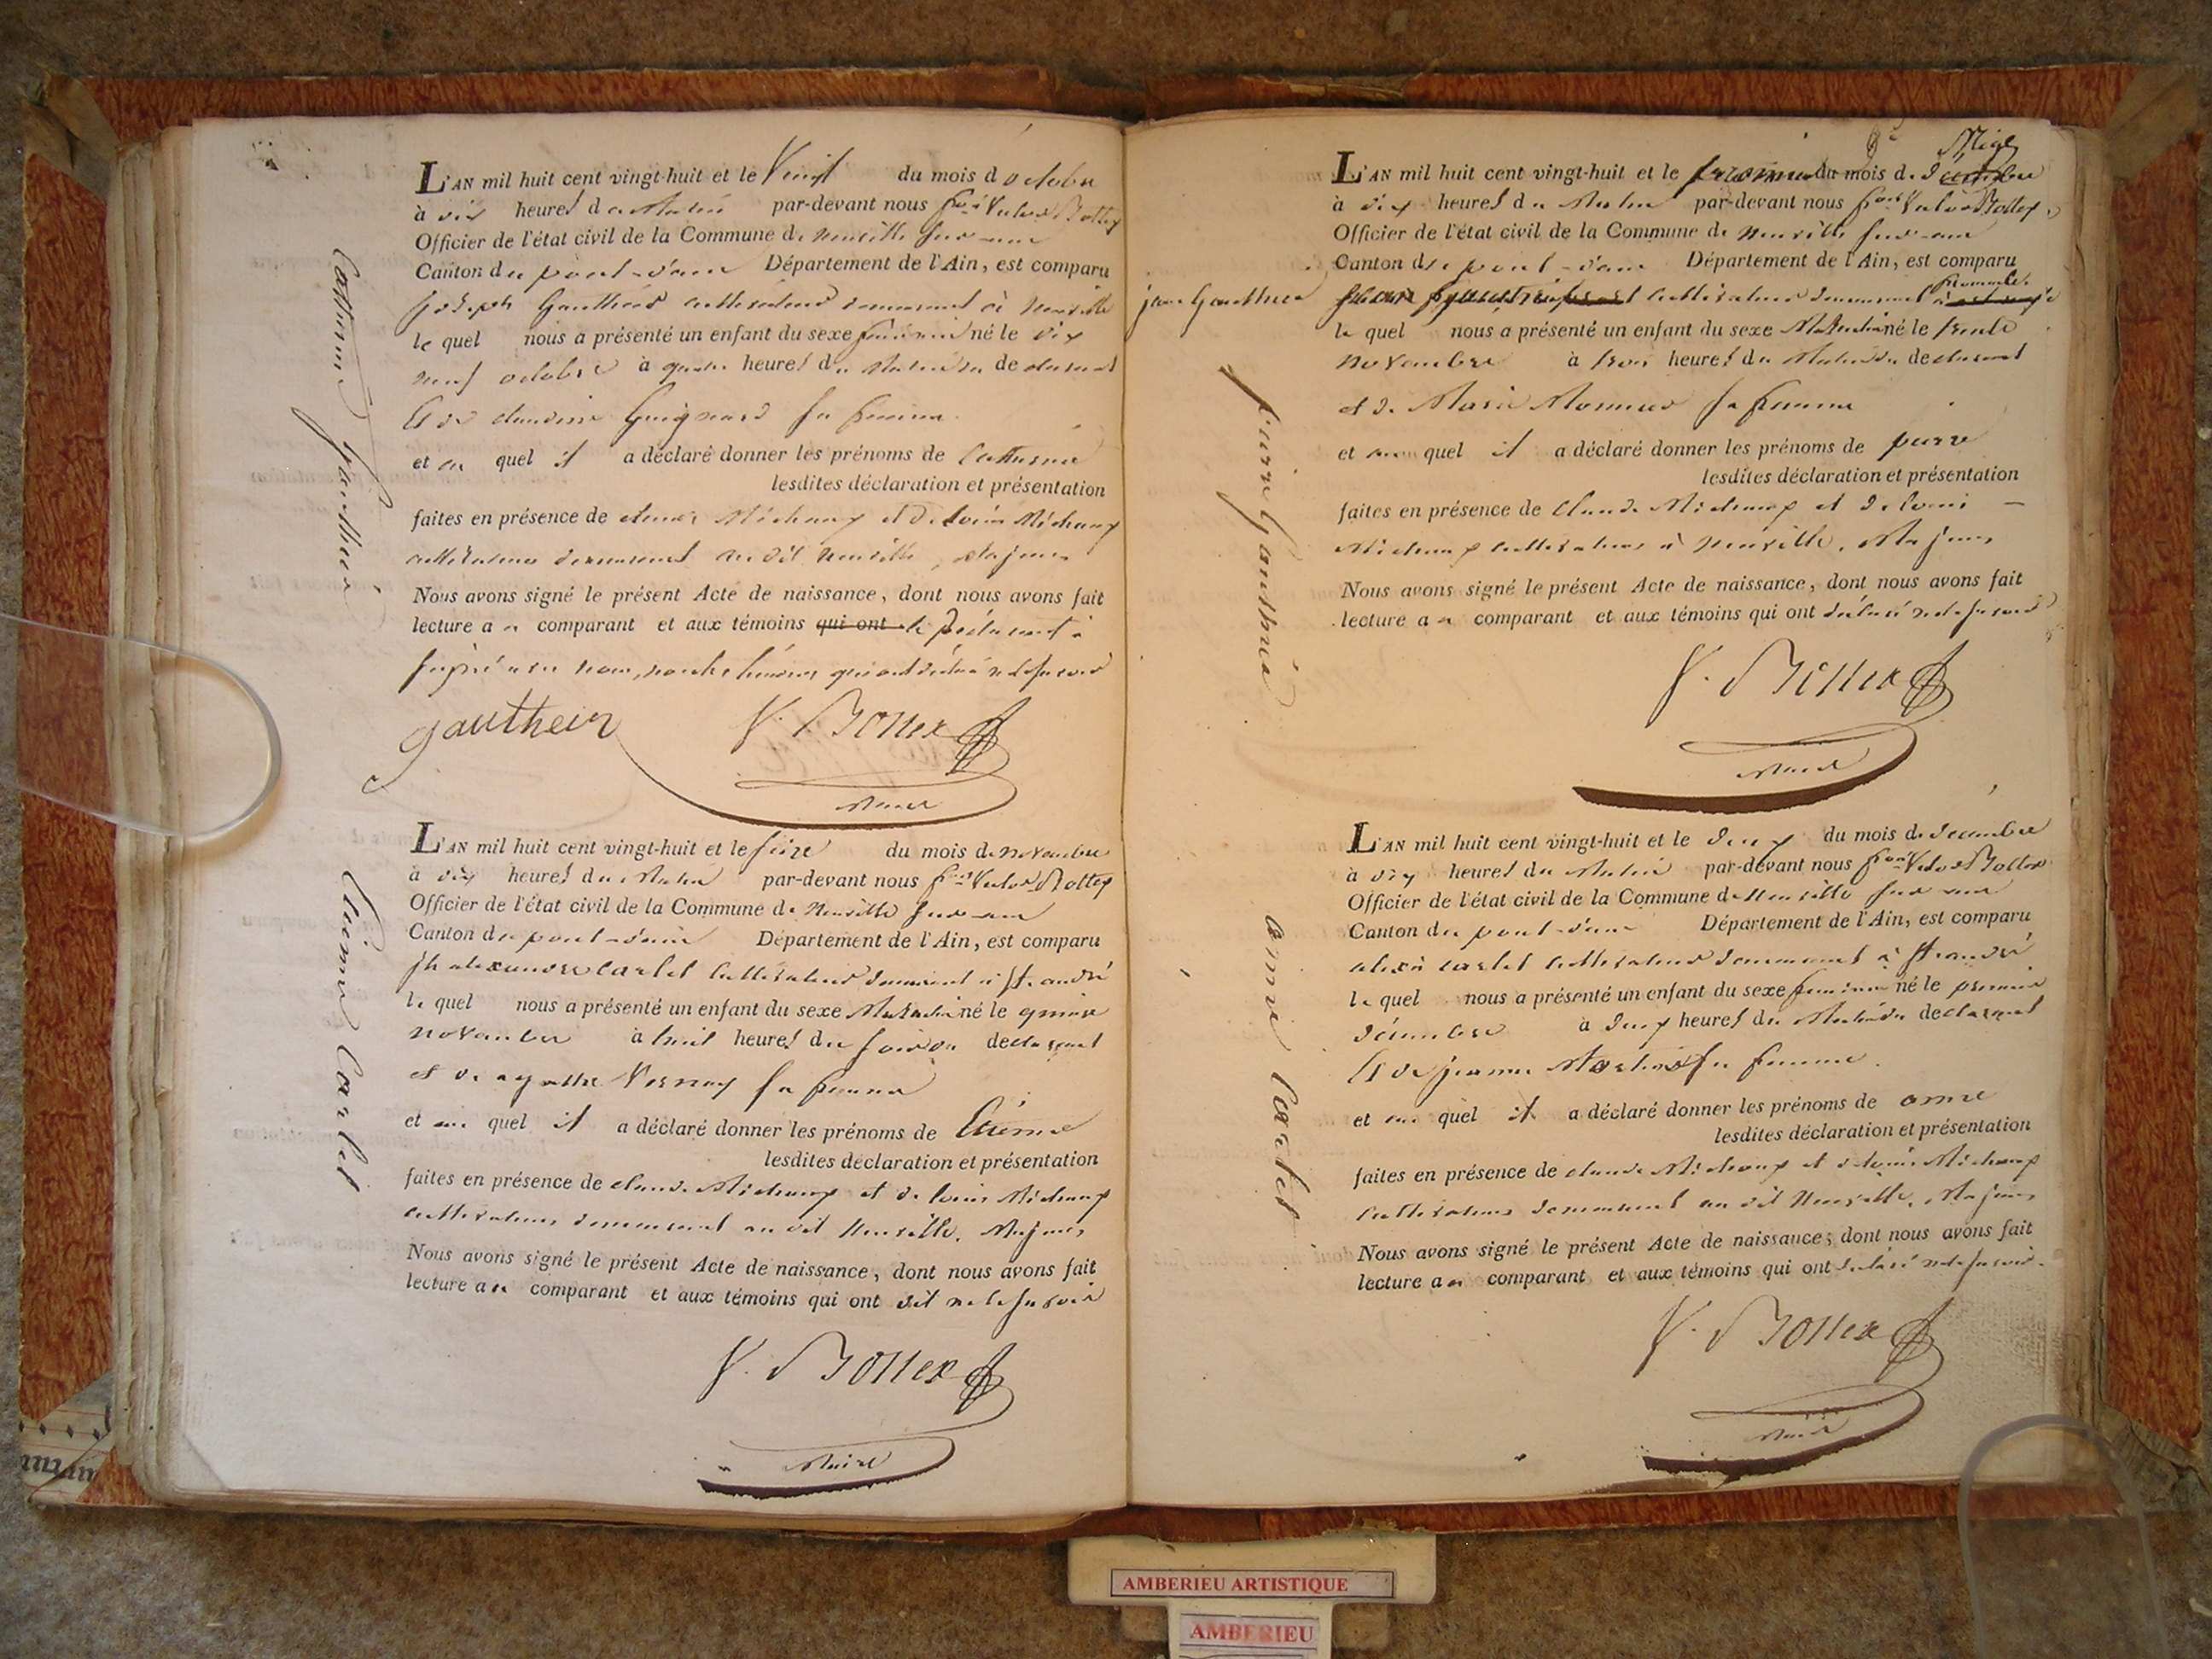 L'AN mil huit cent vingt-huit et le Vingt du mois d octobre
à dix heures du Matin par-devant nous fçois Victor Bottex
Officier de l'état civil de la Commune de neuville sur ain
Canton du pont-d'ain Département de l'Ain, est comparu
joseph Gauthier cultivateur demeurant à Neuville
le quel nous a présenté un enfant du sexe féminin né le dix
neuf octobre à quatre heures du Matin du declarant
Et de claudine Guignard sa femme
et au quel il a déclaré donner les prénoms de Catherine
lesdites déclaration et présentation
faites en présence de claude Michaux et de louis Michaux
cultivateurs demeurant au dit neuville, Majeurs
Nous avons signé le présent Acte de naissance, dont nous avons fait
lecture au comparant et aux témoins qui ont le déclarant à
signé a son nom, non les témoins qui ont déclaré ne le savoir
gautheir V. Bottex
Maire
Catherine Gauthier
L'AN mil huit cent vingt-huit et le seize du mois de novembre
à dix heures du Matin par-devant nous fçois Victor Bottex
Officier de l'état civil de la Commune de Neuville sur ain
Canton du pont-d'ain Département de l'Ain, est comparu
jh alexandre Carlet Cultivateur demeurant à St. andré
le quel nous a présenté un enfant du sexe Masculin né le quinze
novembre à huit heures du soir du declarant
et de agathe Vernay sa femme
et au quel il a déclaré donner les prénoms de Etiénne
lesdites déclaration et présentation
faites en présence de claude Michaux et de louis Michaux
cultivateurs demeurant au dit Neuville. Majeurs
Nous avons signé le présent Acte de naissance, dont nous avons fait
lecture au comparant et aux témoins qui ont dit ne le savoir
V. Bottex
Maire
Etiénne Carlet
L'AN mil huit cent vingt-huit et le premier du mois de décembre
à dix heures du Matin par-devant nous fçois Victor Bottex
Officier de l'état civil de la Commune de Neuville sur ain
Canton du pont-d'ain Département de l'Ain, est comparu
jean Gauthier cultivateur demeurant à
le quel nous a présenté un enfant du sexe Masculin né le trente
novembre à trois heures du Matin du declarant
et de Marie Monnier sa femme
et au quel il a déclaré donner les prénoms de pierre
lesdites déclaration et présentation
faites en présence de Claude Michaux et de louis
Michaux cultivateurs à Neuville. Majeurs
Nous avons signé le présent Acte de naissance, dont nous avons fait
lecture au comparant et aux témoins qui ont déclaré ne le savoir
V. Bottex
Maire
pierre Gauthier
L'AN mil huit cent vingt-huit et le deux du mois de décembre
à dix heures du Matin par-devant nous fçois Victor Bottex
Officier de l'état civil de la Commune de Neuville sur ain
Canton du pont-d'ain Département de l'Ain, est comparu
alexis Carlet Cultivateur demeurant à St andré
le quel nous a présenté un enfant du sexe feminin né le premier
décembre à deux heures du Matin du declarant
Et de jeanne Martin sa femme.
et au quel il a déclaré donner les prénoms de anne
lesdites déclaration et présentation
faites en présence de claude Michaux et de louis Michaux
Cultivateurs demeurant au dit Neuville. Majeurs
Nous avons signé le présent Acte de naissance; dont nous avons fait
lecture au comparant et aux témoins qui ont déclaré ne le savoir.
V. Bottex
Maire
anne Carlet
AMBERIEU ARTISTIQUE
AMBERIEU